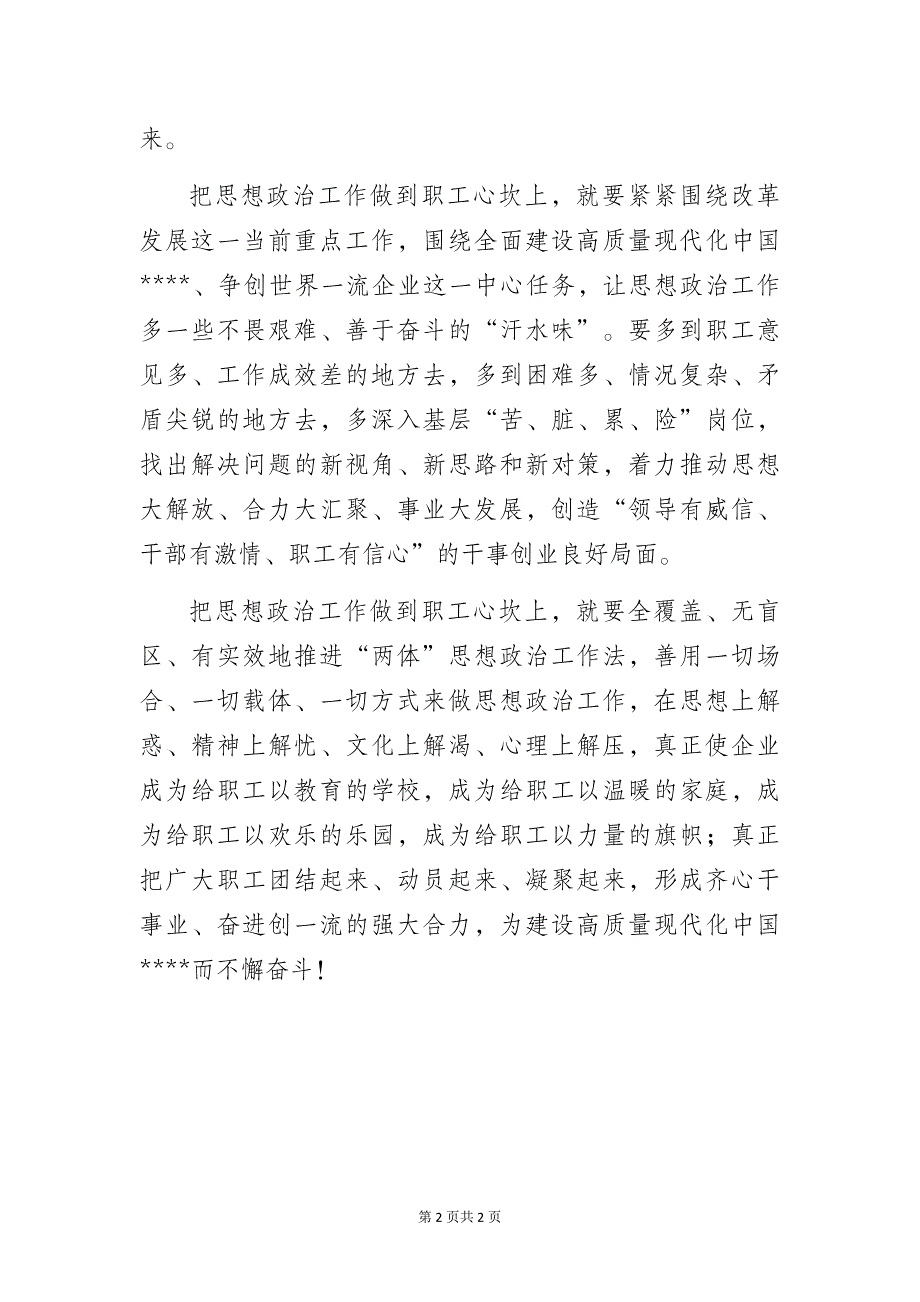 来。
把思想政治工作做到职工心坎上，就要紧紧围绕改革
发展这一当前重点工作，围绕全面建设高质量现代化中国
****、争创世界一流企业这一中心任务，让思想政治工作
多一些不畏艰难、善于奋斗的“汗水味”。要多到职工意
见多、工作成效差的地方去，多到困难多、情况复杂、矛
盾尖锐的地方去，多深入基层“苦、脏、累、险”岗位，
找出解决问题的新视角、新思路和新对策，着力推动思想
大解放、合力大汇聚、事业大发展，创造“领导有威信、
干部有激情、职工有信心”的干事创业良好局面。
把思想政治工作做到职工心坎上，就要全覆盖、无盲
区、有实效地推进“两体”思想政治工作法，善用一切场
合、一切载体、一切方式来做思想政治工作，在思想上解
惑、精神上解忧、文化上解渴、心理上解压，真正使企业
成为给职工以教育的学校，成为给职工以温暖的家庭，成
为给职工以欢乐的乐园，成为给职工以力量的旗帜；真正
把广大职工团结起来、动员起来、凝聚起来，形成齐心干
事业、奋进创一流的强大合力，为建设高质量现代化中国
****而不懈奋斗！
第 2 页共 2 页